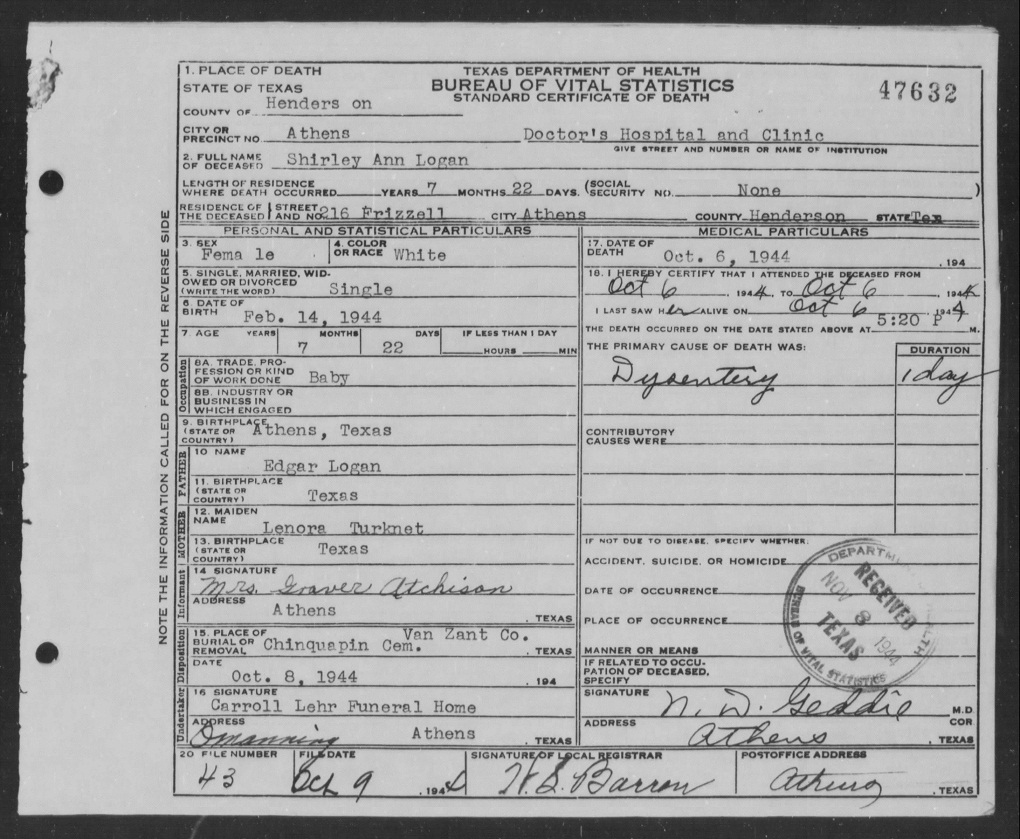 TEXAS DEPARTMENT OF HEALTH
BUREAU OF VITAL STATISTICS
STANDARD CERTIFICATE OF DEATH
47632
1. PLACE OF DEATH
STATE OF TEXAS
COUNTY OF Henders on
CITY OR PRECINCT NO. Athens Doctor's Hospital and Clinic
GIVE STREET AND NUMBER OR NAME OF INSTITUTION
2. FULL NAME OF DECEASED Shirley Ann Logan
LENGTH OF RESIDENCE WHERE DEATH OCCURRED YEARS 7 MONTHS 22 DAYS. (SOCIAL SECURITY NO. None )
RESIDENCE OF THE DECEASED STREET AND NO. 216 Frizzell CITY Athens COUNTY Henderson STATE Tex
PERSONAL AND STATISTICAL PARTICULARS
3. SEX Fema le
4. COLOR OR RACE White
5. SINGLE, MARRIED, WIDOWED OR DIVORCED (WRITE THE WORD) Single
6. DATE OF BIRTH Feb. 14, 1944
7. AGE YEARS MONTHS DAYS IF LESS THAN 1 DAY
7 22 HOURS MIN
Occupation
8A. TRADE, PROFESSION OR KIND OF WORK DONE Baby
8B. INDUSTRY OR BUSINESS IN WHICH ENGAGED
9. BIRTHPLACE (STATE OR COUNTRY) Athens, Texas
FATHER
10 NAME Edgar Logan
11. BIRTHPLACE (STATE OR COUNTRY) Texas
MOTHER
12. MAIDEN NAME Lenora Turknet
13. BIRTHPLACE (STATE OR COUNTRY) Texas
Informant
14 SIGNATURE Mrs. Graver Atchison
ADDRESS Athens , TEXAS
Disposition
15. PLACE OF BURIAL OR REMOVAL Chinquapin Cem. Van Zant Co. , TEXAS
DATE Oct. 8, 1944 , 194
Undertaker
16 SIGNATURE Carroll Lehr Funeral Home
ADDRESS Omanning Athens , TEXAS
MEDICAL PARTICULARS
17. DATE OF DEATH Oct. 6, 1944 , 194
18. I HEREBY CERTIFY THAT I ATTENDED THE DECEASED FROM
Oct 6 1944 TO Oct 6 , 1944
I LAST SAW Her ALIVE ON Oct 6 , 1944
THE DEATH OCCURRED ON THE DATE STATED ABOVE AT 5:20 P M.
THE PRIMARY CAUSE OF DEATH WAS: DURATION
Dysentery 1 day
CONTRIBUTORY CAUSES WERE
IF NOT DUE TO DISEASE, SPECIFY WHETHER:
ACCIDENT, SUICIDE, OR HOMICIDE
DATE OF OCCURRENCE
PLACE OF OCCURRENCE
MANNER OR MEANS
IF RELATED TO OCCUPATION OF DECEASED, SPECIFY
SIGNATURE N. D. Geddie M.D.
COR
ADDRESS Athens , TEXAS
RECEIVED
NOV 8 1944
TEXAS
BUREAU OF VITAL STATISTICS
20 FILE NUMBER FILE DATE SIGNATURE OF LOCAL REGISTRAR POSTOFFICE ADDRESS
43 Oct 9 , 1944 H. S. Barron Athens , TEXAS
NOTE THE INFORMATION CALLED FOR ON THE REVERSE SIDE